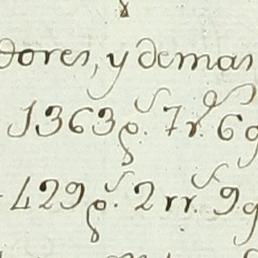 dores, y demas
1363p.s 7 r.s 6 g
429p.s 2 rr.s 9 g